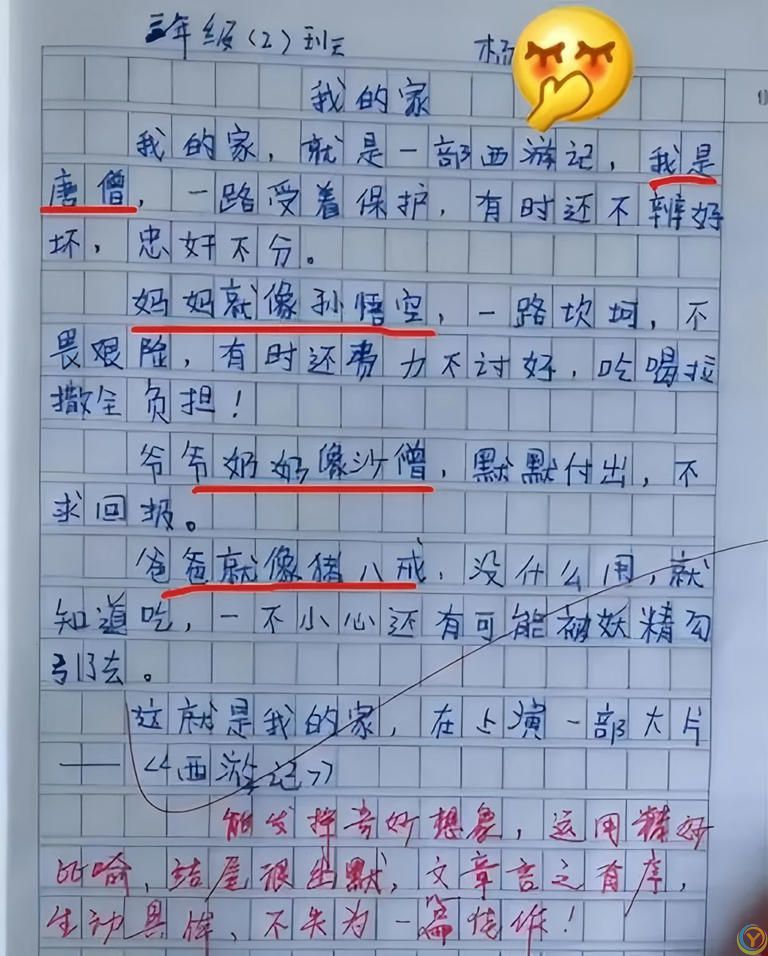 三年级（2）班 杨
我的家
我的家，就是一部西游记，我是
唐僧，一路受着保护，有时还不辨好
坏，忠奸不分。
妈妈就像孙悟空，一路坎坷，不
畏艰险，有时还费力不讨好，吃喝拉
撒全负担！
爷爷奶奶像沙僧，默默付出，不
求回报。
爸爸就像猪八戒，没什么用，就
知道吃，一不小心还有可能被妖精勾
引去。
这就是我的家，在上演一部大片
——《西游记》
能发挥奇妙想象，运用精妙
比喻，结尾很幽默，文章言之有序，
生动具体，不失为一篇佳作！